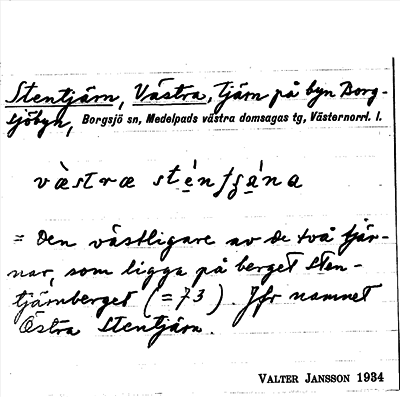 Stentjärn, Västra, tjärn på byn Borg-
sjöbyn, Borgsjö sn, Medelpads västra domsagas tg, Västernorrl. l.
væ̀stræ
= Den västligare av de två tjär-
nar, som ligga på berget Sten-
tjärnberget (=73). Jfr namnet
Östra Stentjärn.
VALTER JANSSON 1934